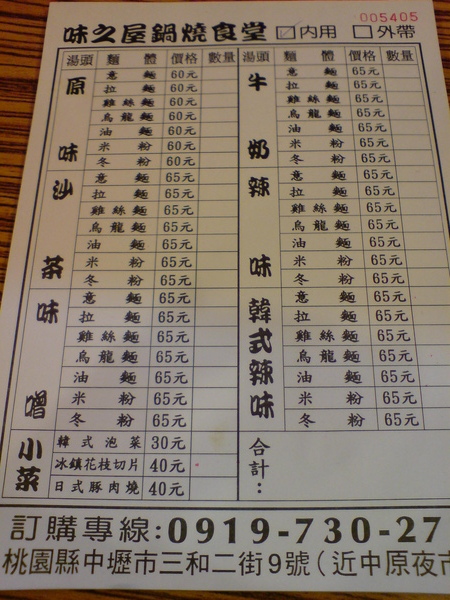 味之屋鍋燒食堂 ☑内用 □外帶
005405
湯頭 麵體 價格 數量
原味
意麵 60元
拉麵 60元
雞絲麵 60元
烏龍麵 60元
油麵 60元
米粉 60元
冬粉 60元
沙茶
意麵 65元
拉麵 65元
雞絲麵 65元
烏龍麵 65元
油麵 65元
米粉 65元
冬粉 65元
味噌
意麵 65元
拉麵 65元
雞絲麵 65元
烏龍麵 65元
油麵 65元
米粉 65元
冬粉 65元
小菜
韓式泡菜 30元
冰鎮花枝切片 40元
日式豚肉燒 40元
湯頭 麵體 價格 數量
牛奶
意麵 65元
拉麵 65元
雞絲麵 65元
烏龍麵 65元
油麵 65元
米粉 65元
冬粉 65元
辣味
意麵 65元
拉麵 65元
雞絲麵 65元
烏龍麵 65元
油麵 65元
米粉 65元
冬粉 65元
韓式辣味
意麵 65元
拉麵 65元
雞絲麵 65元
烏龍麵 65元
油麵 65元
米粉 65元
冬粉 65元
合計:
訂購專線:0919-730-27
桃園縣中壢市三和二街9號(近中原夜市